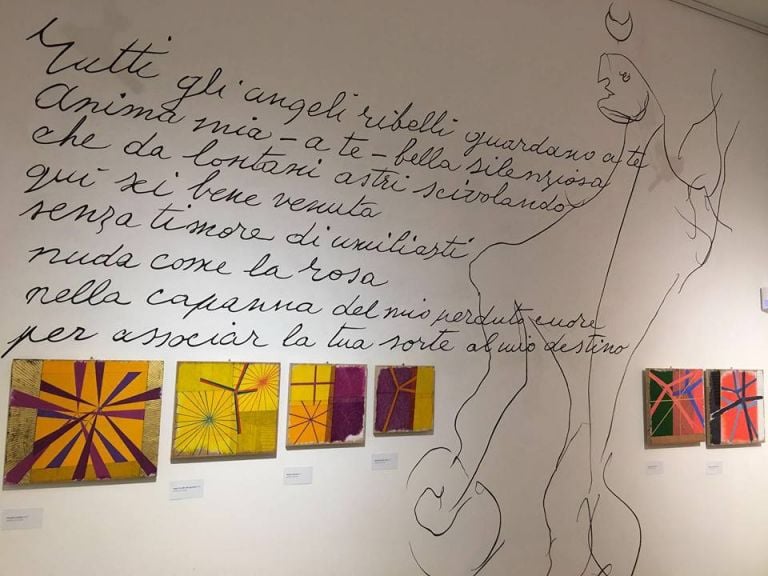 Tutti gli angeli ribelli guardano a te
Anima mia – a te – bella silenziosa
che da lontani astri scivolando
qui sei bene venuta
senza timore di umiliarti
nuda come la rosa
nella capanna del mio perduto cuore
per associar la tua sorte al mio destino